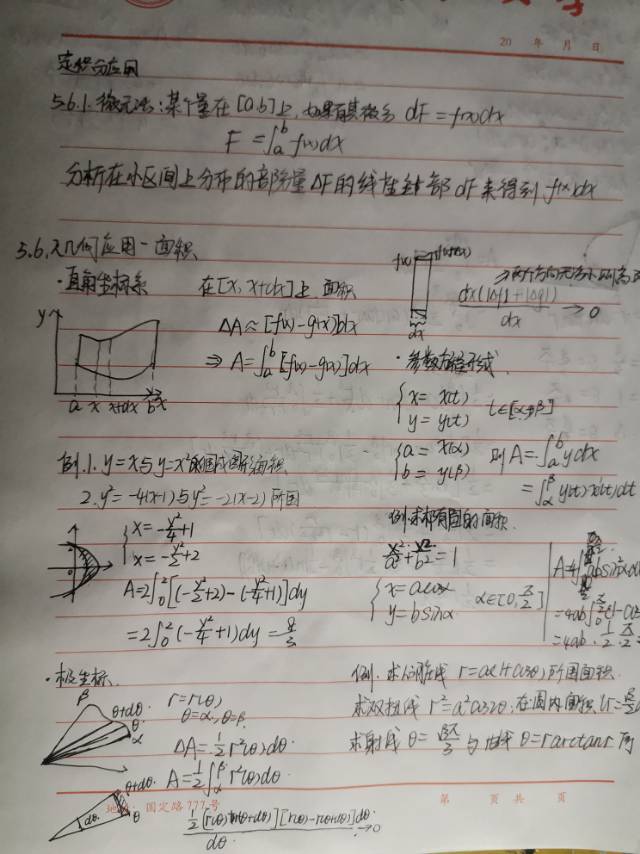 20 年 月 日
定积分应用
5.6.1. 微元法: 某个量在 [a,b] 上, 如果有其微分 dF = f(x)dx
F = ∫_a^b f(x)dx
分析在小区间上分布的部分量 ΔF 的线性主部 dF 来得到 f(x)dx
5.6.2 几何应用-面积
· 直角坐标系 在 [x, x+dx] 上 面积
ΔA ≈ [f(x)-g(x)]dx
⇒ A = ∫_a^b [f(x)-g(x)]dx
y
a x x+dx b x
f(x)
dx
dx(|Δf|+|Δg|)
dx
→ 0
· 参数方程形式
{ x = x(t)
y = y(t) t∈[α,β]
{ a = x(α)
b = y(β) 则 A = ∫_a^b y dx
= ∫_α^β y(t)x'(t)dt
例.1. y=x与y=x²所围成图形面积
2. y²=-4(x-1)与y²=-2(x-2)所围
{ x = -y²/4+1
x = -y²/2+2
A = 2∫_0^2 [(-y²/2+2)-(-y²/4+1)]dy
= 2∫_0^2 (-y²/4+1)dy = 8/3
例.求椭圆围的面积
x²/a²+y²/b²=1
{ x = acosα
y = bsinα α∈[0, π/2]
=4ab·1/2·π/2
· 极坐标
β θ+dθ θ α
r=r(θ)
θ=α, θ=β.
ΔA = 1/2 r²(θ)dθ
A = 1/2 ∫_α^β r²(θ)dθ
θ+dθ
θ
dθ
1/2[r(θ)+r(θ+dθ)][r(θ)-r(θ+dθ)]dθ
dθ
→0
例. 求心脏线 r=a(1+cosθ)所围面积
求双扭线 r²=a²cos2θ,在圆内面积
求射线 θ= 与曲线 θ=rarctanr 所
地址: 国定路777号
第 页 共 页